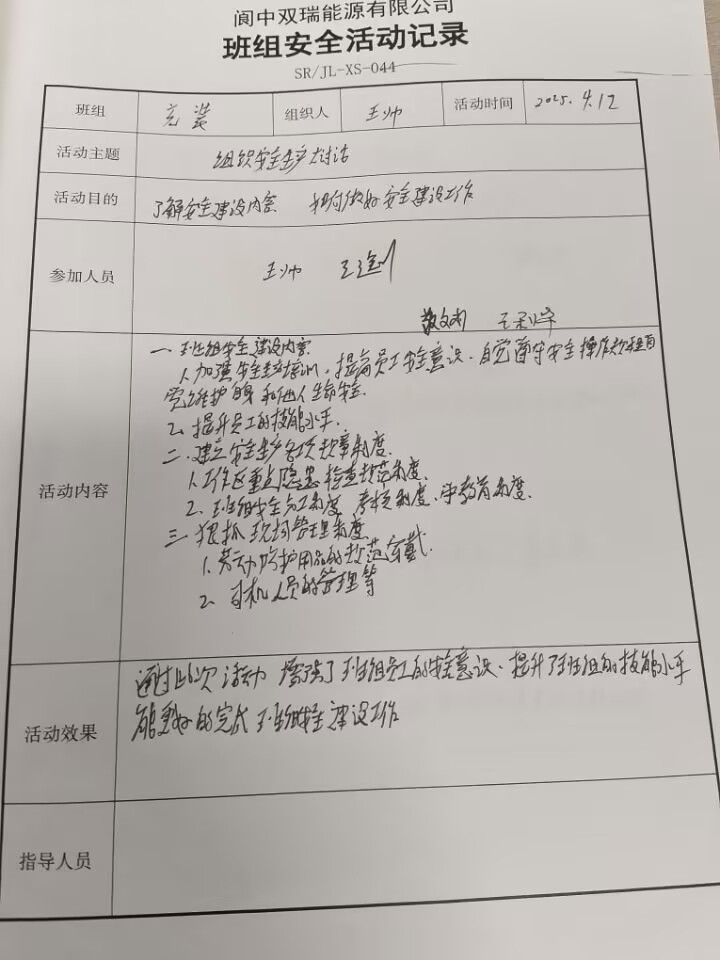 阆中双瑞能源有限公司
班组安全活动记录
SR/JL-XS-044
班组 充装 组织人 王帅 活动时间 2025.4.12
活动主题 组织安全生产大讨论
活动目的 了解安全建设内容 如何做好安全建设工作
参加人员 王帅
活动内容
一、班组安全建设内容
1.加强安全生产培训,提高员工安全意识、自觉遵守安全操作规程自
觉维护自身和他人生命安全.
2、提升员工的技能水平.
二、建立安全生产各项规章制度.
1.工作区重点隐患检查规范制度.
2、班组安全分工制度、考核制度、学教育制度.
三、狠抓现场管理制度
1.劳动防护用品的规范穿戴.
2、司机人员的管理等
活动效果 通过此次活动 增强了班组员工的安全意识、提升了班组的技能水平
能更好的完成班组安全建设工作
指导人员